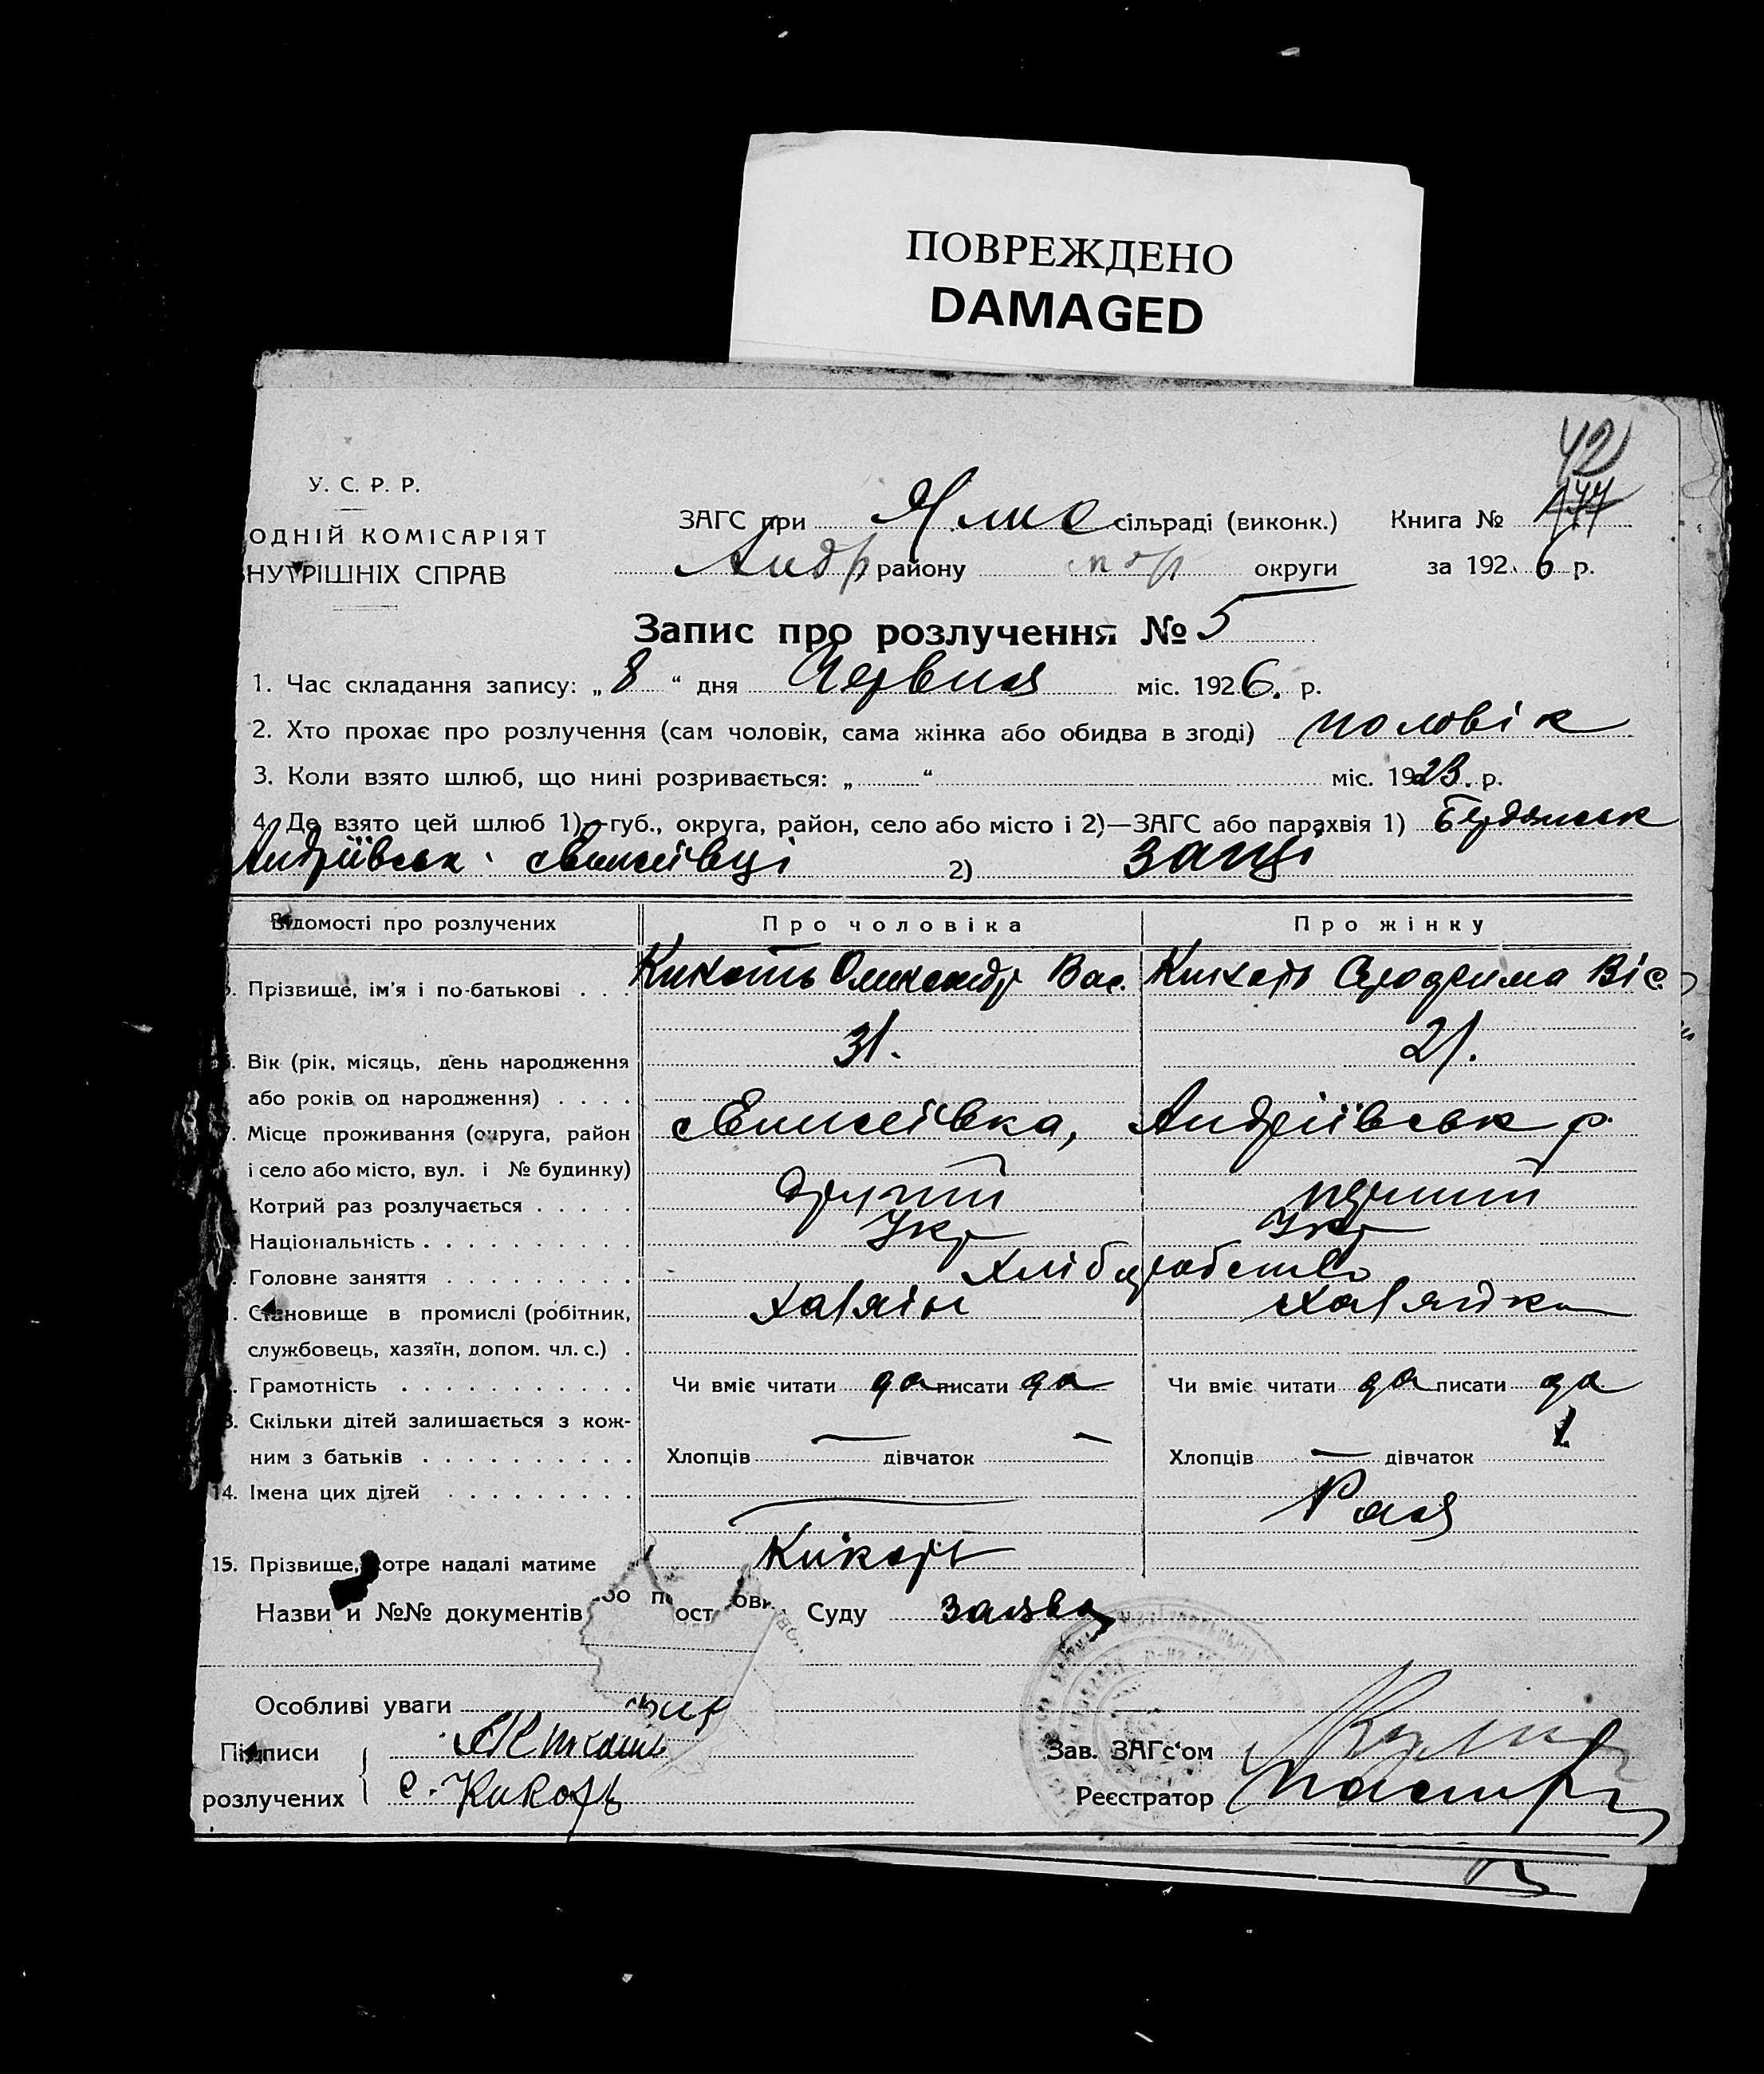 ПОВРЕЖДЕНО
DAMAGED
42
У. С. Р. Р.
ОДНІЙ КОМІСАРІЯТ
НУТРІШНІХ СПРАВ
ЗАГС при сільраді (виконк.) Книга № 144
Андр району округи за 1926 р.
Запис про розлучення № 5
1. Час складання запису: „8“ дня Червня міс. 1926. р.
2. Хто прохає про розлучення (сам чоловік, сама жінка або обидва в згоді) чоловік
3. Коли взято шлюб, що нині розривається: „ “ міс. 1923. р.
4. Де взято цей шлюб 1)—губ., округа, район, село або місто і 2)—ЗАГС або парахвія 1) Бердянськ
Андріївськ Єлисеївці 2) Загсі
Відомості про розлучених Про чоловіка Про жінку
Прізвище, ім'я і по-батькові . . . Кикоть Олександр Вас. Кикоть Віс
Вік (рік, місяць, день народження 31. 21.
або років од народження) . . . .
Місце проживання (округа, район Єлисеївка, Андріївськ р.
і село або місто, вул. і № будинку)
Котрий раз розлучається . . . . . другий перший
Національність . . . . . . . . . . Укр Укр
Головне заняття . . . . . . . . . Хліборобство
Становище в промислі (робітник, хазяїн хазяйка
службовець, хазяїн, допом. чл. с.) .
Грамотність . . . . . . . . . . . Чи вміє читати да писати да Чи вміє читати да писати да
3. Скільки дітей залишається з кож-
ним з батьків . . . . . . . . . . Хлопців — дівчаток — Хлопців — дівчаток 1
14. Імена цих дітей . . . . . . . . . — Рая
15. Прізвище, котре надалі матиме Кикоть
Назви и №№ документів Суду заява
Особливі уваги
Підписи
розлучених с. Кикоть
Зав. ЗАГс'ом
Реєстратор